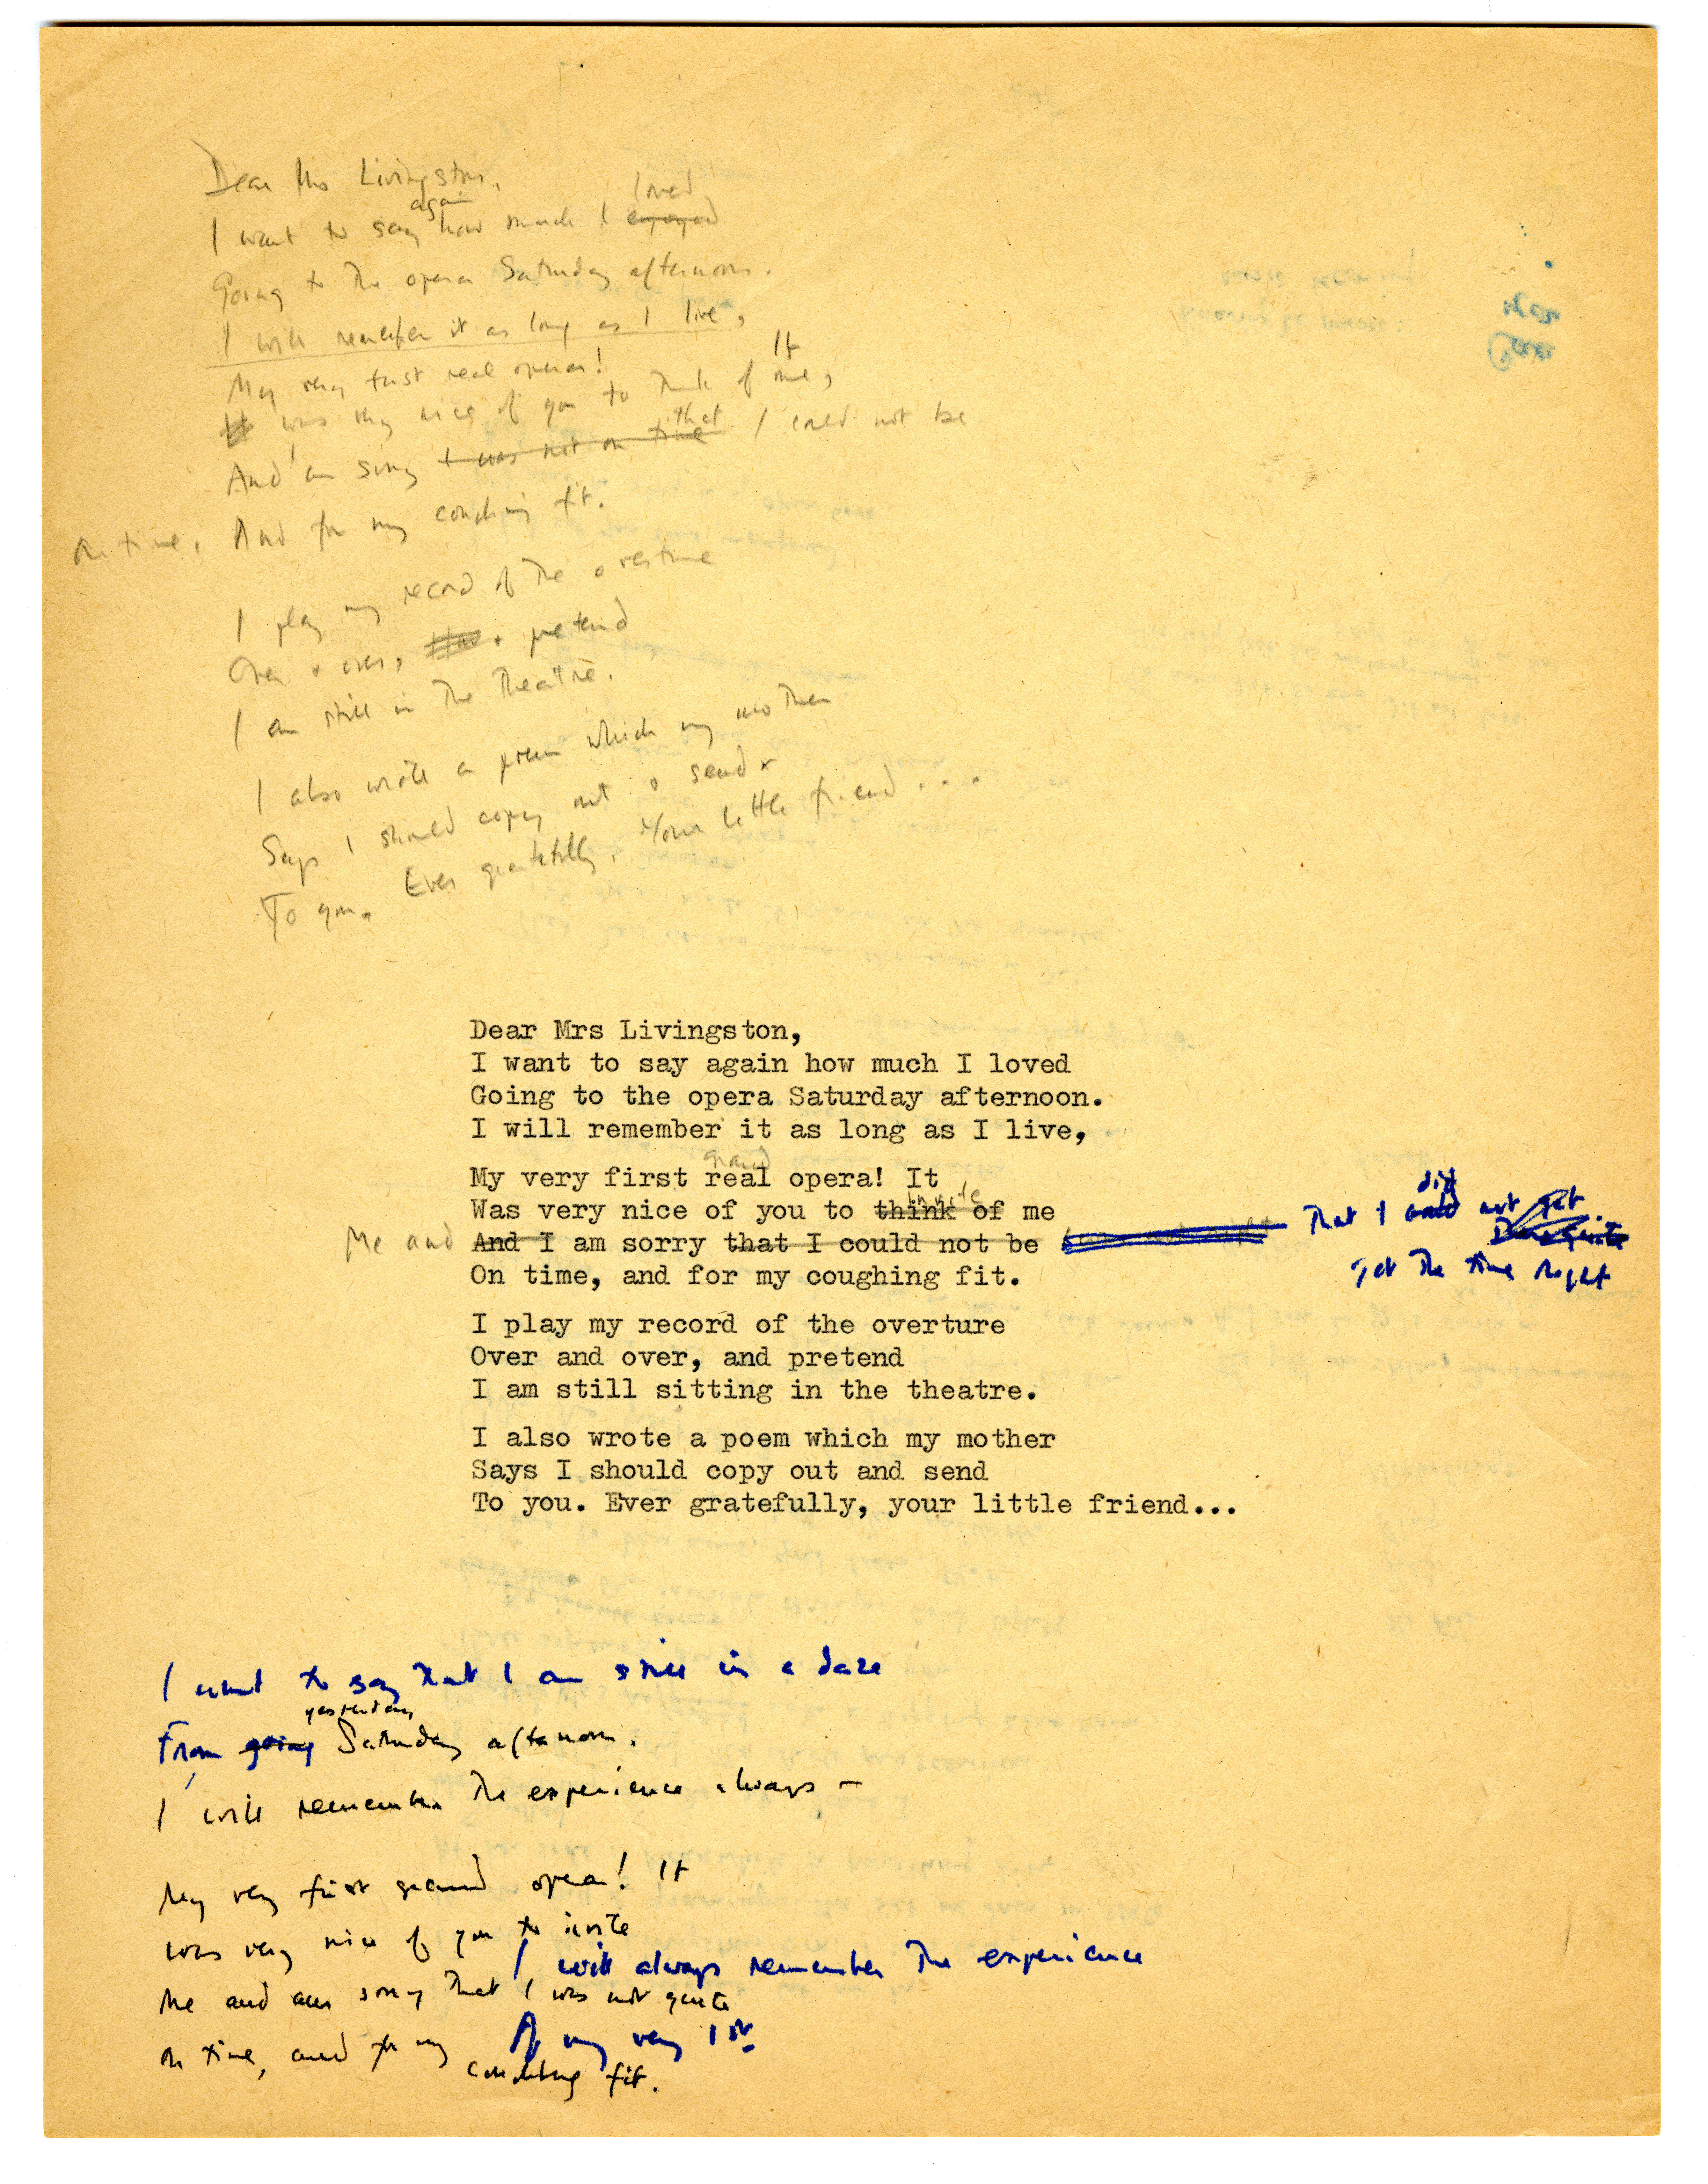 Dear Mrs Livingston,
again loved
I want to say how much I enjoyed
Going to the opera Saturday afternoon.
I will remember it as long as I live,
My very first real opera! It
It was very nice of you to think of me,
And I am sorry I was not on time that I could not be
On time, And for my coughing fit.
I play my record of the overture
Over + over, + pretend
I am still in the theatre.
I also wrote a poem which my mother
Says I should copy out + send
To you. Ever gratefully, Your little friend . . .
Dear Mrs Livingston,
I want to say again how much I loved
Going to the opera Saturday afternoon.
I will remember it as long as I live,
grand
My very first real opera! It
invite
Was very nice of you to think of me
Me and And I am sorry that I could not be
That I could did not get
Quite
get the time right
On time, and for my coughing fit.
I play my record of the overture
Over and over, and pretend
I am still sitting in the theatre.
I also wrote a poem which my mother
Says I should copy out and send
To you. Ever gratefully, your little friend...
I want to say that I am still in a daze
yesterday
From going Saturday afternoon.
I will remember the experience always –
My very first grand opera! It
was very nice of you to invite
I will always remember the experience
Me and am sorry that I was not quite
Of my very 1st
On time, and for my coughing fit.